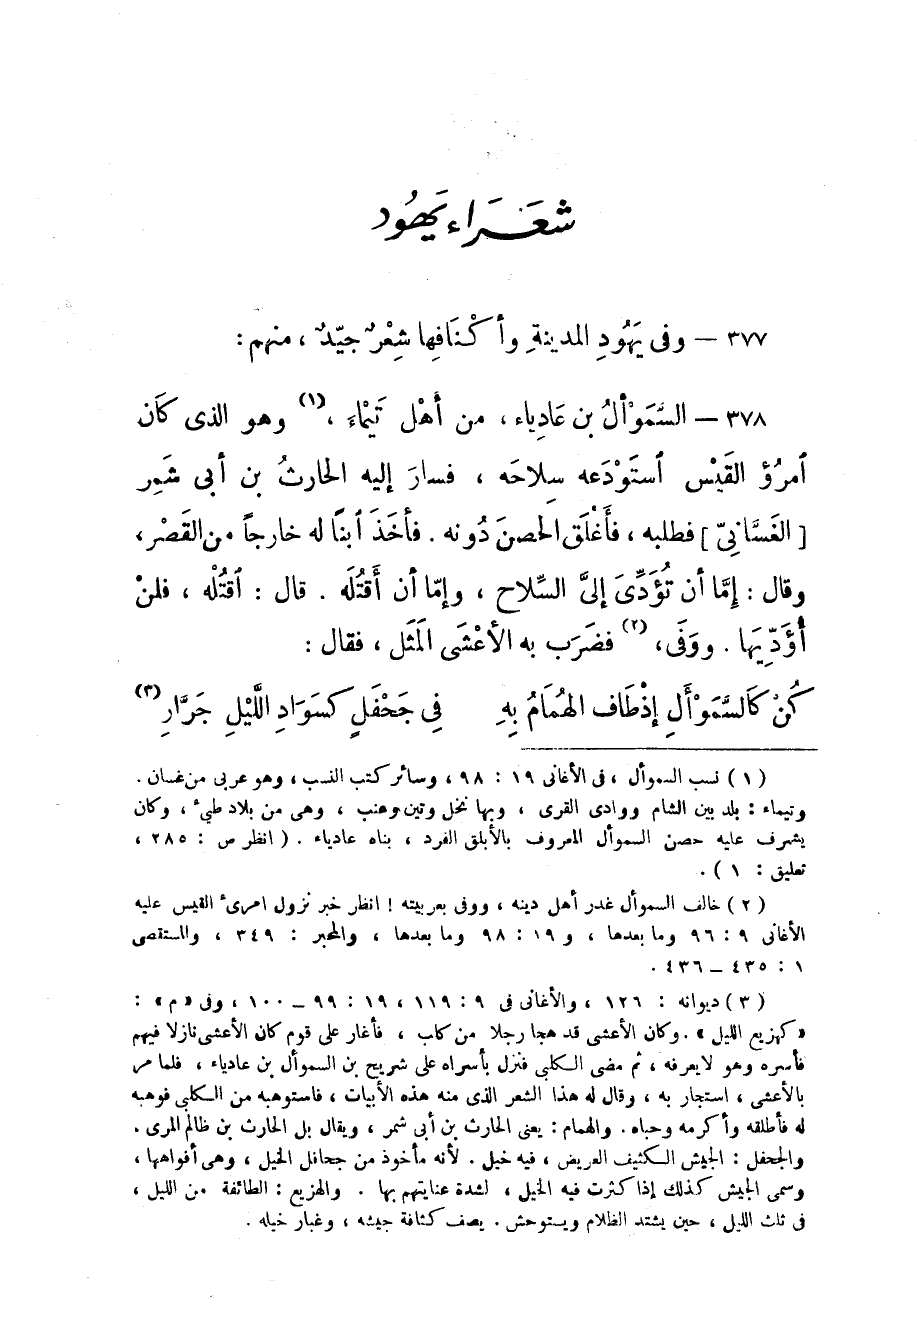 شعَرَاء يَهُود
٣٧٧ – وفى يَهُودِ المدينةِ وأكْنَافِها شِعْرٌ جيّدٌ ، منهم :
٣٧٨ – السَّمَوْألُ بن عَادِياء ، من أَهْل تَيْماء ،(١) وهو الذى كَان
ٱمرُؤ القَيْس ٱستَوْدَعه سِلاحَه ، فسارَ إليه الحارثُ بن أبى شمِر
[ الغَسَّانِىّ ] فطلبه ، فأَغْلَق الحصنَ دُونه . فأخَذَ ٱبنًا له خارجاً من القَصْر ،
وقال : إمَّا أن تُؤَدِّىَ إلىَّ السِّلاح ، وإمّا أن أَقتُلَه . قال : ٱقتُلْه ، فلنْ
أُؤَدِّيَها . ووَفَى ،(٢) فضَرَب به الأَعْشَى المَثَل ، فقال :
كُنْ كَالسَّمَوْأَلِ إذْ طَاف الهُمَامُ بِهِ فِى جَحْفَلٍ كسَوَادِ اللَّيْلِ جَرَّارِ(٣)
( ١ ) نسب السموأل ، فى الأغانى ١٩ : ٩٨ ، وسائر كتب النسب ، وهو عربى من غسان .
وتيماء : بلد بين الشام ووادى القرى ، وبها نخل وتين وعنب ، وهى من بلاد طيىء ، وكان
يشرف عليه حصن السموأل المعروف بالأبلق الفرد ، بناه عادياء . ( انظر ص : ٢٨٥ ،
تعليق : ١ ) .
( ٢ ) خالف السموأل غدر أهل دينه ، ووفى بعربيته ! انظر خبر نزول امرىء القيس عليه
الأغانى ٩ : ٩٦ وما بعدها ، و ١٩ : ٩٨ وما بعدها ، والمحبر : ٣٤٩ ، والمستقصى
١ : ٤٣٥ – ٤٣٦ .
( ٣ ) ديوانه : ١٢٦ ، والأغانى فى ٩ : ١١٩ ، ١٩ : ٩٩ – ١٠٠ ، وفى « م » :
« كهزيع الليل » . وكان الأعشى قد هجا رجلا من كلب ، فأغار على قوم كان الأعشى نازلا فيهم
فأسره وهو لا يعرفه ، ثم مضى الكلبى فنزل بأسراه على شريح بن السموأل بن عادياء ، فلما مر
بالأعشى ، استجار به ، وقال له هذا الشعر الذى منه هذه الأبيات ، فاستوهبه من الكلبى فوهبه
له فأطلقه وأكرمه وحباه . والهمام : يعنى الحارث بن أبى شمر ، ويقال بل الحارث بن ظالم المرى .
والجحفل : الجيش الكثيف العريض ، فيه خيل . لأنه مأخوذ من جحافل الخيل ، وهى أفواهها ،
وسمى الجيش كذلك إذا كثرت فيه الخيل ، لشدة عنايتهم بها . والهزيع : الطائفة من الليل ،
فى ثلث الليل ، حين يشتد الظلام ويستوحش . يصف كثافة جيشه ، وغبار خيله .